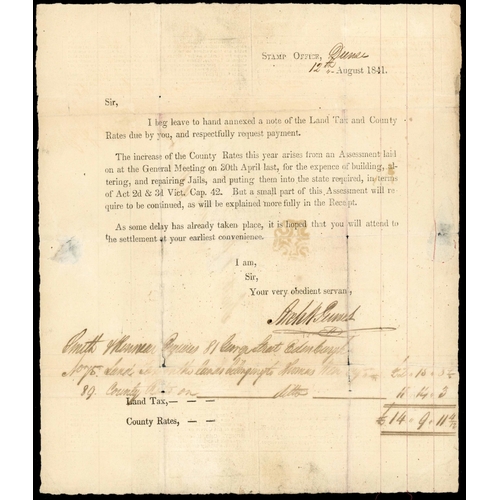 STAMP OFFICE, Dunse
12th August 1841.
Sir,
I beg leave to hand annexed a note of the Land Tax and County
Rates due by you, and respectfully request payment.
The increase of the County Rates this year arises from an Assessment laid
on at the General Meeting on 30th April last, for the expence of building, al-
tering, and repairing Jails, and putting them into the state required, in terms
of Act 2d & 3d Vict. Cap. 42. But a small part of this Assessment will re-
quire to be continued, as will be explained more fully in the Receipt.
As some delay has already taken place, it is hoped that you will attend to
the settlement at your earliest convenience.
I am,
Sir,
Your very obedient servant,
Smith & Kinnear Esquires 81 George Street Edinburgh
No 75. Land
89. County on Ditto 11 . 14 . 3
LAND TAX, — —
COUNTY RATES, — — £ 14 . 9 . 11